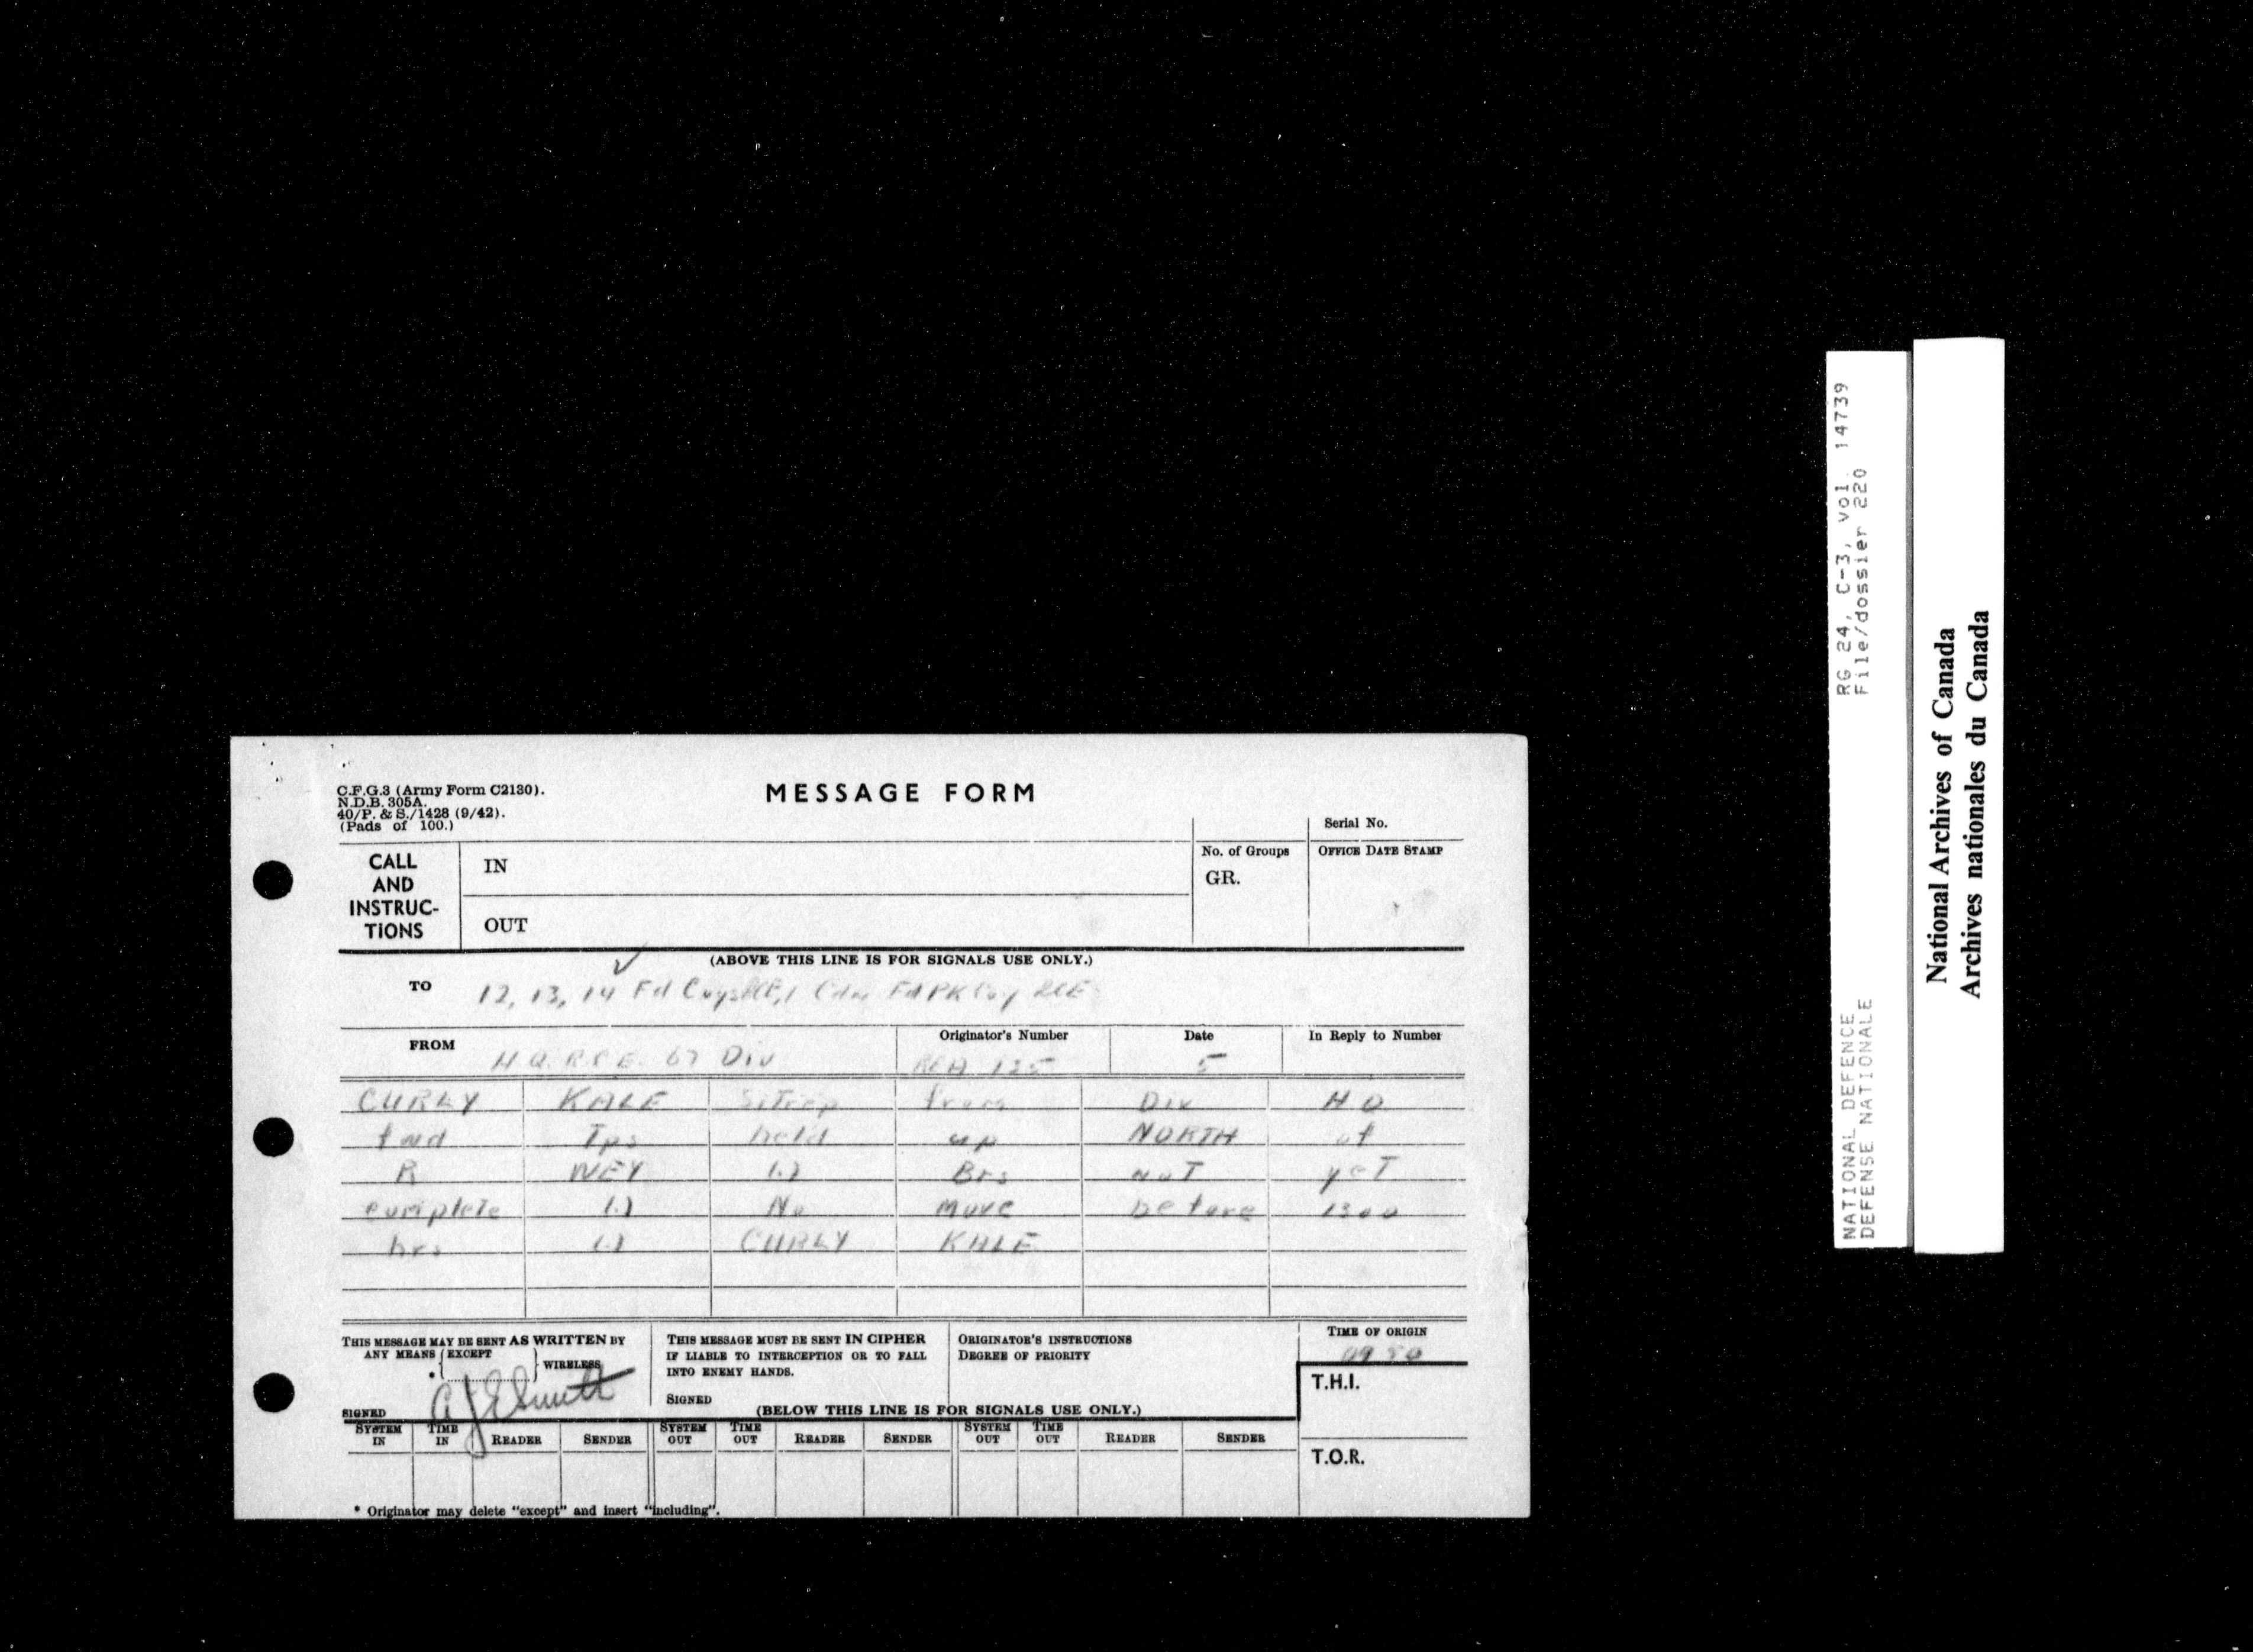 C.F.G.3 (Army Form C2130).
N.D.B. 305A.
40/P. & S./1428 (9/42).
(Pads of 100.)
MESSAGE FORM
Serial No.
CALL AND INSTRUC-TIONS
IN
OUT
No. of Groups
GR.
OFFICE DATE STAMP
(ABOVE THIS LINE IS FOR SIGNALS USE ONLY.)
TO 12, 13, 14 Fd Coys RCE, 1 Cdn Fd PK Coy RCE
FROM H.Q. R.C.E. 67 Div
Originator's Number
Date 5
In Reply to Number
CURLY KALE Sitrep from Div HQ
fwd Tps held up NORTH of
R WEY (.) Brs not yet
complete (.) No move before 1300
hrs (.) CURLY KALE
THIS MESSAGE MAY BE SENT AS WRITTEN BY
ANY MEANS EXCEPT
* WIRELESS
SIGNED A J E Smith
THIS MESSAGE MUST BE SENT IN CIPHER
IF LIABLE TO INTERCEPTION OR TO FALL
INTO ENEMY HANDS.
SIGNED
ORIGINATOR'S INSTRUCTIONS
DEGREE OF PRIORITY
TIME OF ORIGIN
T.H.I.
(BELOW THIS LINE IS FOR SIGNALS USE ONLY.)
SYSTEM IN TIME IN READER SENDER SYSTEM OUT TIME OUT READER SENDER SYSTEM OUT TIME OUT READER SENDER
T.O.R.
* Originator may delete "except" and insert "including".
RG 24, C-3, vol. 14739
File/dossier 220
NATIONAL DEFENCE
DEFENSE NATIONALE
National Archives of Canada
Archives nationales du Canada